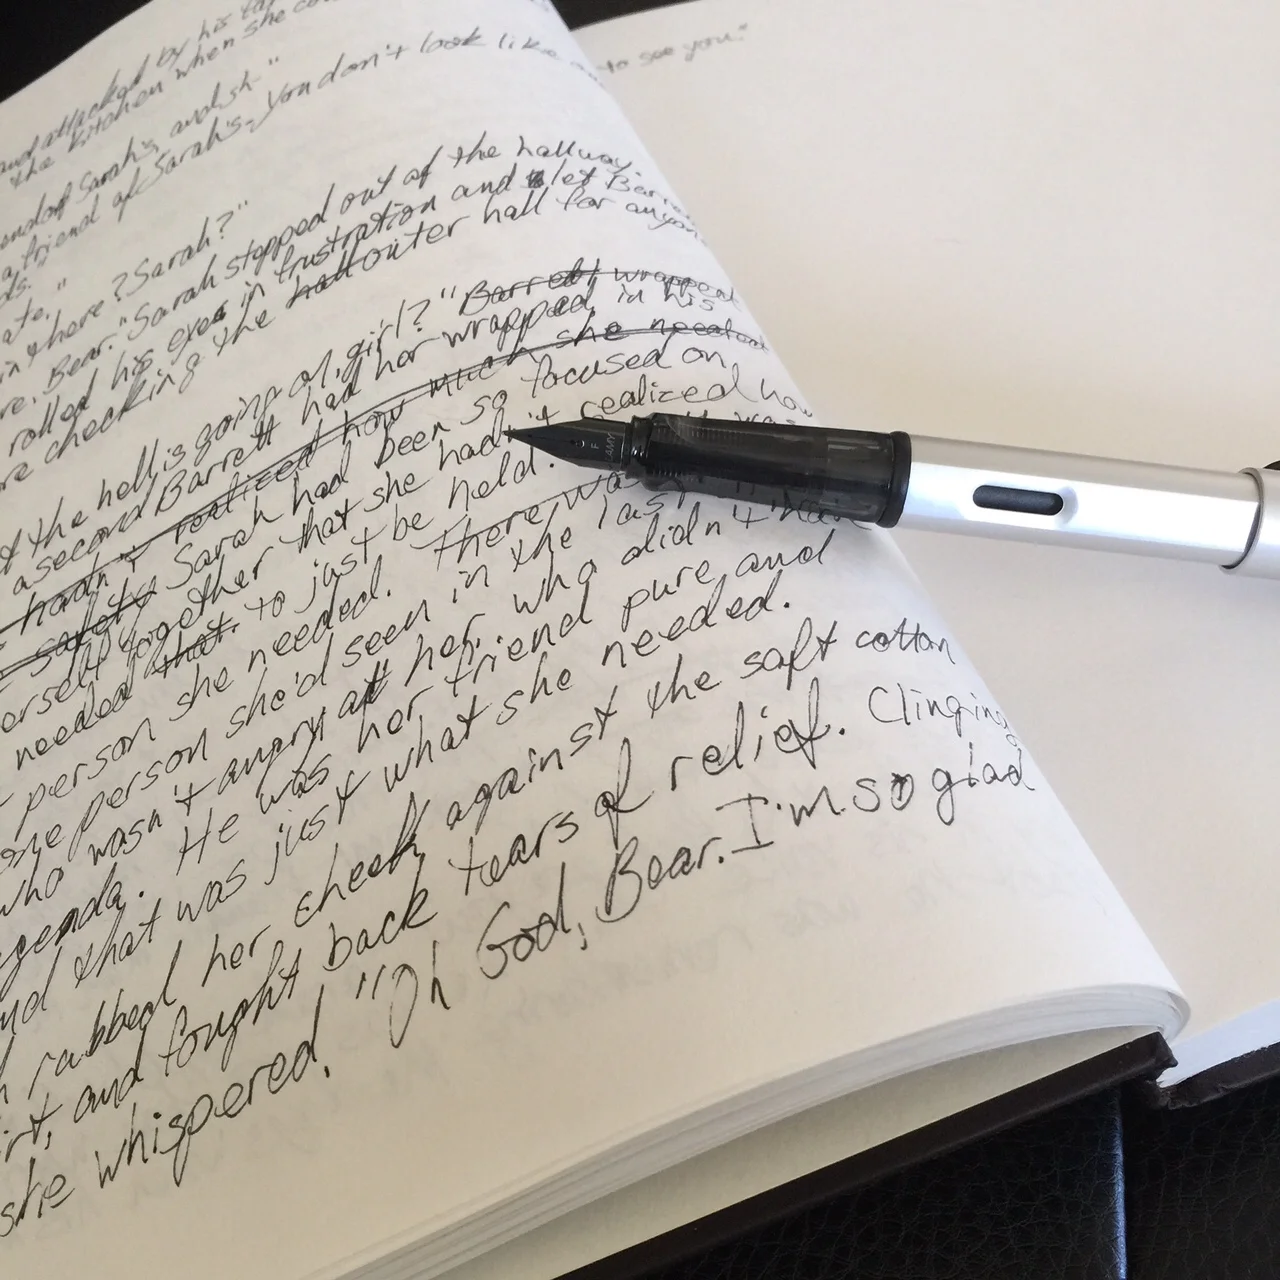 and attacked by his
the kitchen when she
Sarah's, and sh-"
a friend of Sarah's. You don't look like
ate."
in there? Sarah?"
re, Bear." Sarah stopped out of the hallway.
rolled his eyes in frustration and let
re checking the hall outer hall for
t the hell is going on, girl?" Barrett wrapped
a second Barrett had her wrapped in his
hadn't realized how much she needed
safety Sarah had been so focused on
erself together that she hadn't realized how
needed that. to just be held.
person she needed. There was
one person she'd seen in the last
who wasn't angry at her, who didn't
genda. He was her friend pure and
nd that was just what she needed.
rubbed her cheek against the soft cotton
irt, and fought back tears of relief. Clinging
she whispered, "Oh God, Bear. I'm so glad
to see you."
F
LAMY